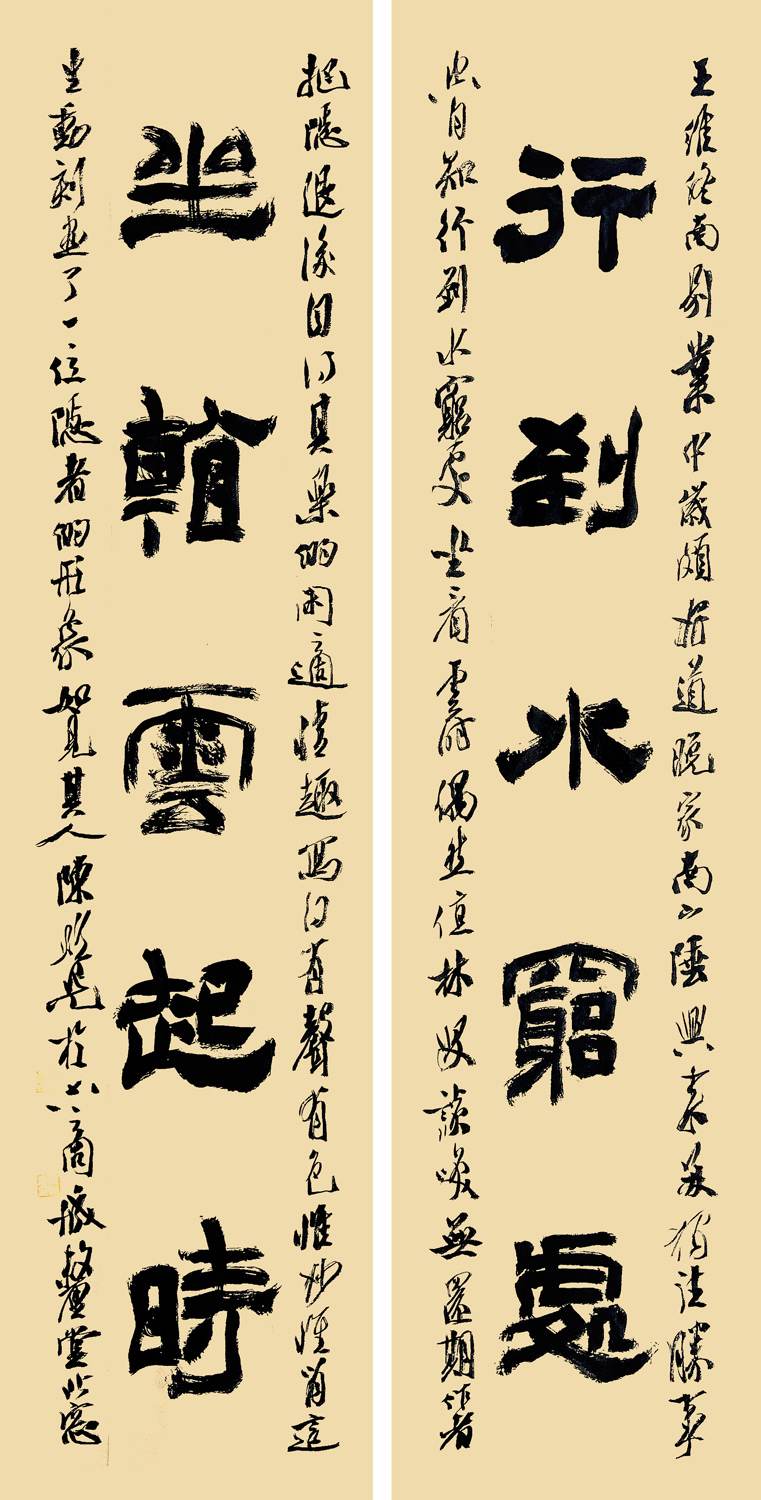 王維終南別業中歲頗好道晚家南山陲興來每獨往勝事
行到水窮處
空自知行到水窮處坐看雲時偶然值林叟談笑無還期作者
把隱退後自得其樂的閒適情趣寫得有聲有色惟妙惟肖這
坐看雲起時
生動刻畫了一位隱者的形象如見其人陳於堂北窗